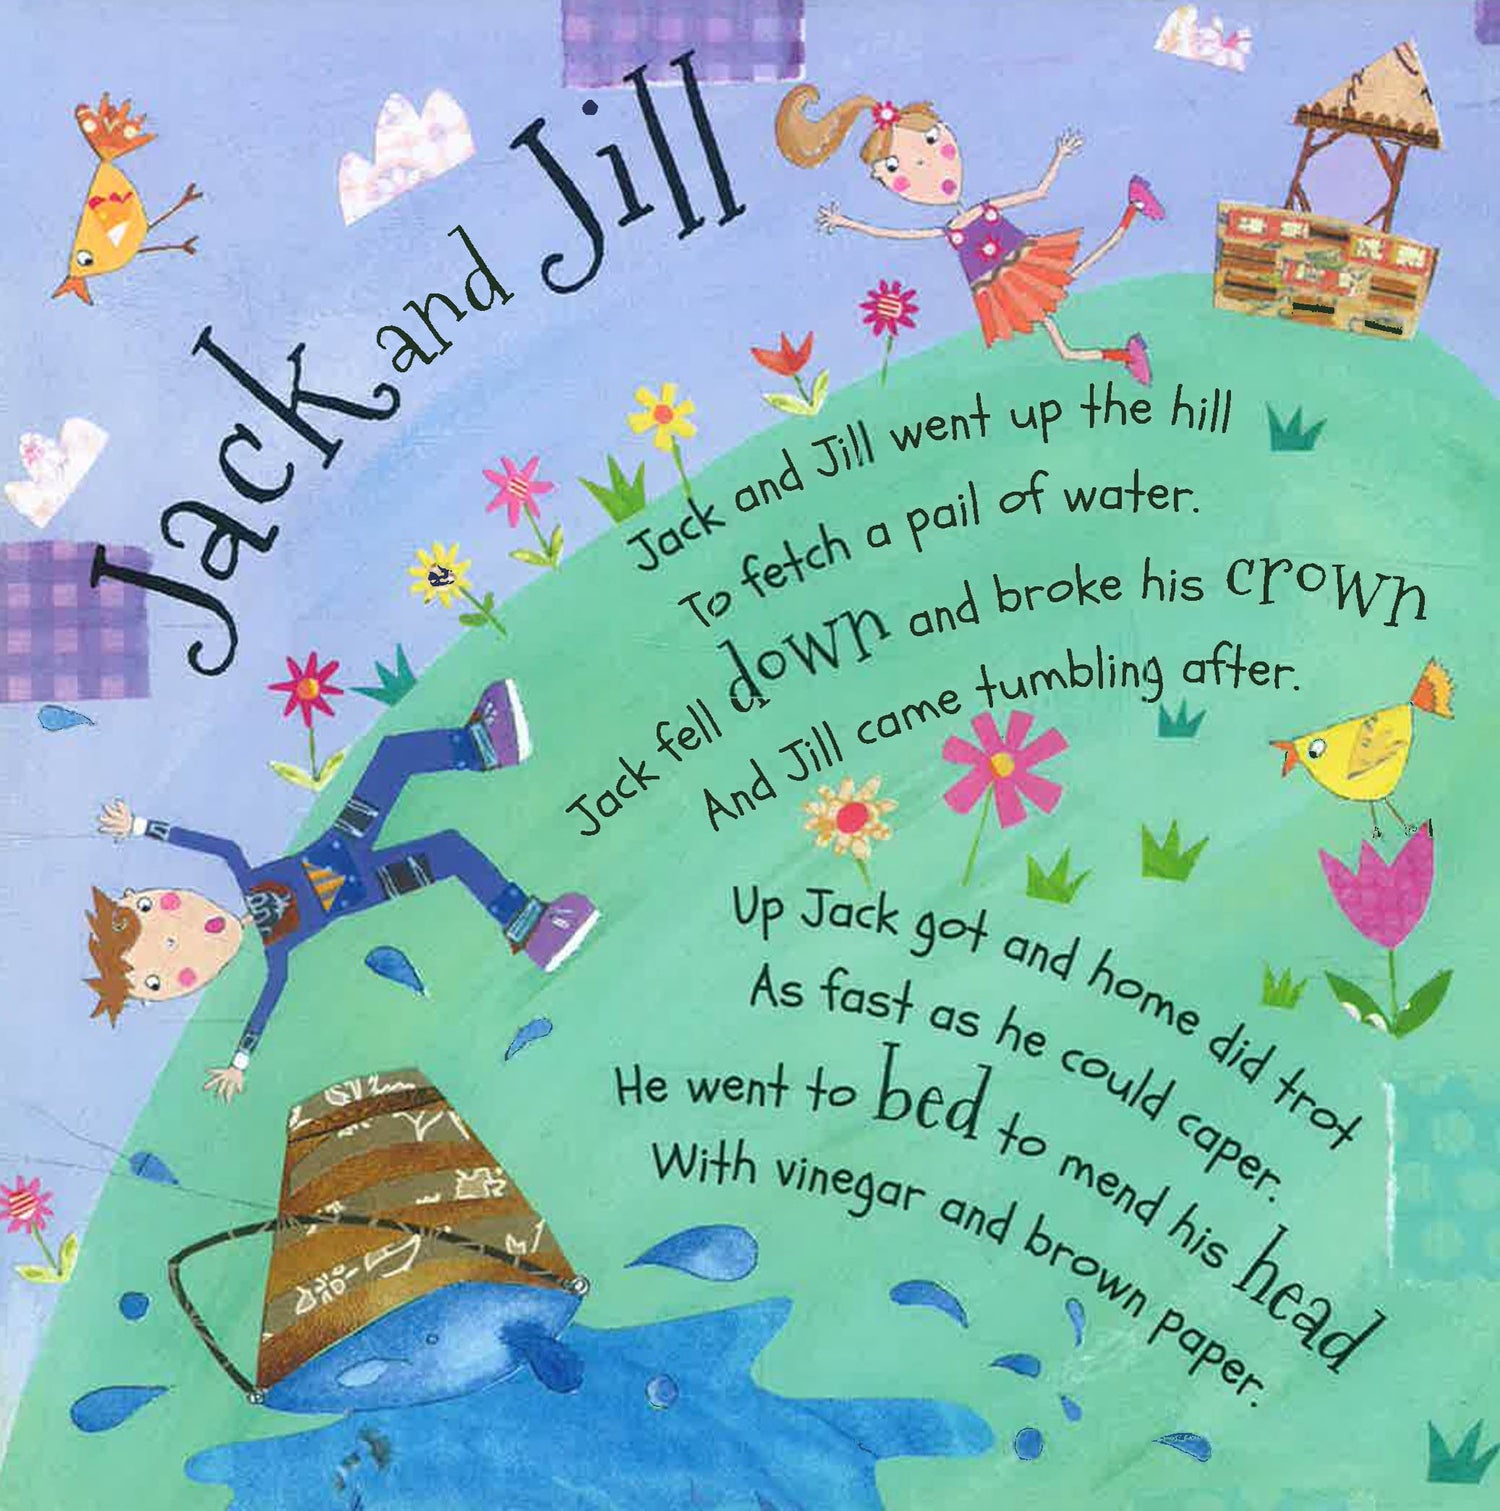 Jack and Jill
Jack and Jill went up the hill
To fetch a pail of water.
Jack fell down and broke his crown
And Jill came tumbling after.
Up Jack got and home did trot
As fast as he could caper.
He went to bed to mend his head
With vinegar and brown paper.